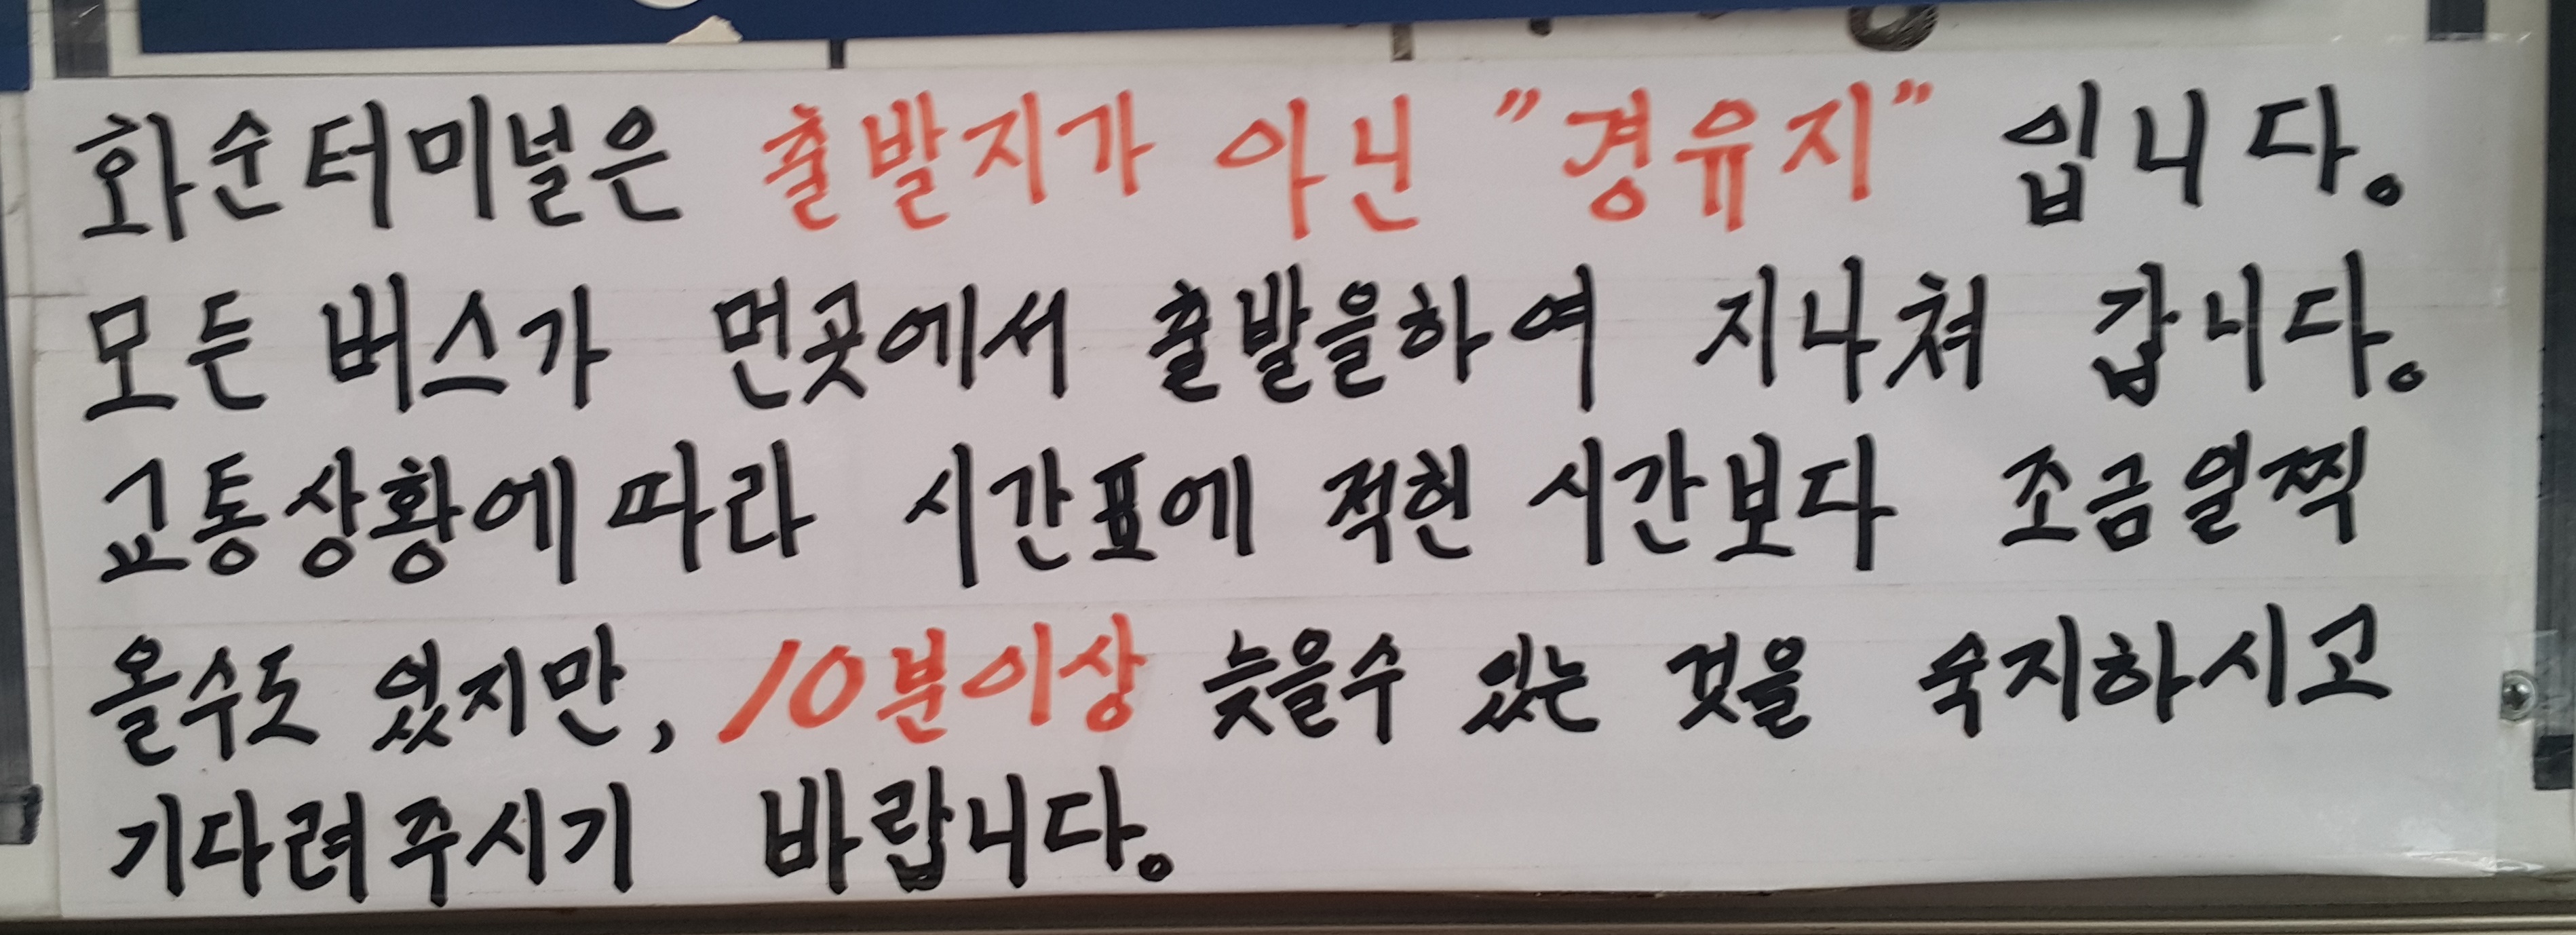 화순터미널은 출발지가 아닌 "경유지" 입니다。
모든 버스가 먼곳에서 출발을하여 지나쳐 갑니다。
교통상황에 따라 시간표에 적힌 시간보다 조금일찍
올수도 있지만, 10분이상 늦을수 있는 것을 숙지하시고
기다려주시기 바랍니다。